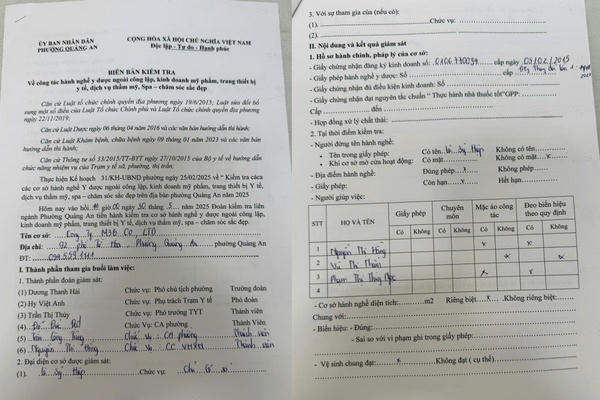 ỦY BAN NHÂN DÂN
PHƯỜNG QUẢNG AN
CỘNG HÒA XÃ HỘI CHỦ NGHĨA VIỆT NAM
Độc lập - Tự do - Hạnh phúc
BIÊN BẢN KIỂM TRA
Về công tác hành nghề y dược ngoài công lập, kinh doanh mỹ phẩm, trang thiết bị
y tế, dịch vụ thẩm mỹ, Spa – chăm sóc sắc đẹp
Căn cứ Luật tổ chức chính quyền địa phương ngày 19/6/2015; Luật sửa đổi bổ
sung một số điều của Luật Tổ chức Chính phủ và Luật Tổ chức chính quyền địa phương
ngày 22/11/2019;
Căn cứ Luật Dược ngày 06 tháng 04 năm 2016 và các văn bản hướng dẫn thi hành;
Căn cứ Luật Khám bệnh, chữa bệnh ngày 09 tháng 01 năm 2023 và các văn bản
hướng dẫn thi hành;
Căn cứ Thông tư số 33/2015/TT-BYT ngày 27/10/2015 của Bộ y tế về hướng dẫn
chức năng nhiệm vụ của Trạm y tế xã, phường, thị trấn;
Thực hiện Kế hoạch 31/KH-UBND phường ngày 25/02/2025 về " Kiểm tra các
các cơ sở hành nghề y dược ngoài công lập, kinh doanh mỹ phẩm, trang thiết bị Y tế,
dịch vụ thẩm mỹ, spa – chăm sóc sắc đẹp trên địa bàn phường Quảng An năm 2025
Hôm nay vào hồi giờ ngày 5 năm 2025 Đoàn kiểm tra liên
ngành Phường Quảng An tiến hành kiểm tra cơ sở hành nghề y dược ngoài công lập,
kinh doanh mỹ phẩm, trang thiết bị Y tế, dịch vụ thẩm mỹ, spa – chăm sóc sắc đẹp.
Tên cơ sở: Công ty MSB CO., LTD
Địa chỉ: 92 phố Từ Hoa, Phường Quảng An phường Quảng An
ĐT:
I. Thành phần tham gia buổi làm việc:
1. Thành phần đoàn giám sát:
(1) Dương Thanh Hải Chức vụ: Phó chủ tịch phường Trưởng đoàn
(2) Hy Việt Anh Chức vụ: Phụ trách Trạm Y tế Phó đoàn
(3) Trần Thị Thủy Chức vụ: Phó trưởng TYT Thành viên
(4) Đỗ Đức Chức Vụ: CA phường Thành Viên
(5) Trần Công Chức vụ: CA phường Thành viên
(6) Nguyễn Thị Chức vụ: CC VHXH Thành viên
2. Đại diện cơ sở được giám sát:
(1). Chức vụ: Chủ cơ sở
3. Với sự tham gia của (nếu có):
(1). Chức vụ:
(2).
II. Nội dung và kết quả giám sát
1. Hồ sơ hành chính, pháp lý của cơ sở:
- Giấy chứng nhận đăng ký kinh doanh số: 0106770094 cấp ngày 03/02/2015
- Giấy phép hành nghề y dược: Số cấp
- Giấy chứng nhận đủ điều kiện kinh doanh: Số
- Giấy chứng nhận đạt nguyên tắc chuẩn " Thực hành nhà thuốc tốt"GPP:
Cấp đến
- Hợp đồng xử lý chất thải:
2. Tại thời điểm kiểm tra:
- Người đứng tên hành nghề:
+ Tên trong giấy phép: Có tên Không có tên
+ Khi cơ sở mở cửa hoạt động: Có mặt Không có mặt x
- Địa điểm hành nghề: Đúng phép x Không phép
- Giấy phép: Còn hạn x Hết hạn
- Người giúp việc:
STT HỌ VÀ TÊN Giấy phép Chuyên môn Mặc áo công tác Đeo biển hiệu theo quy định
Có Không Có Không Có Không Có Không
1 Nguyễn Thị Hồng x x
2 Vũ Thị x x
3 Phạm Thị x x
4
- Cơ sở hành nghề diện tích: m2 Riêng biệt x Không riêng biệt:
Chung với:
- Biển hiệu: - Đúng:
- Sai so với vi phạm ghi trong giấy phép:
- Vệ sinh chung đạt: x Không đạt ( cụ thể)